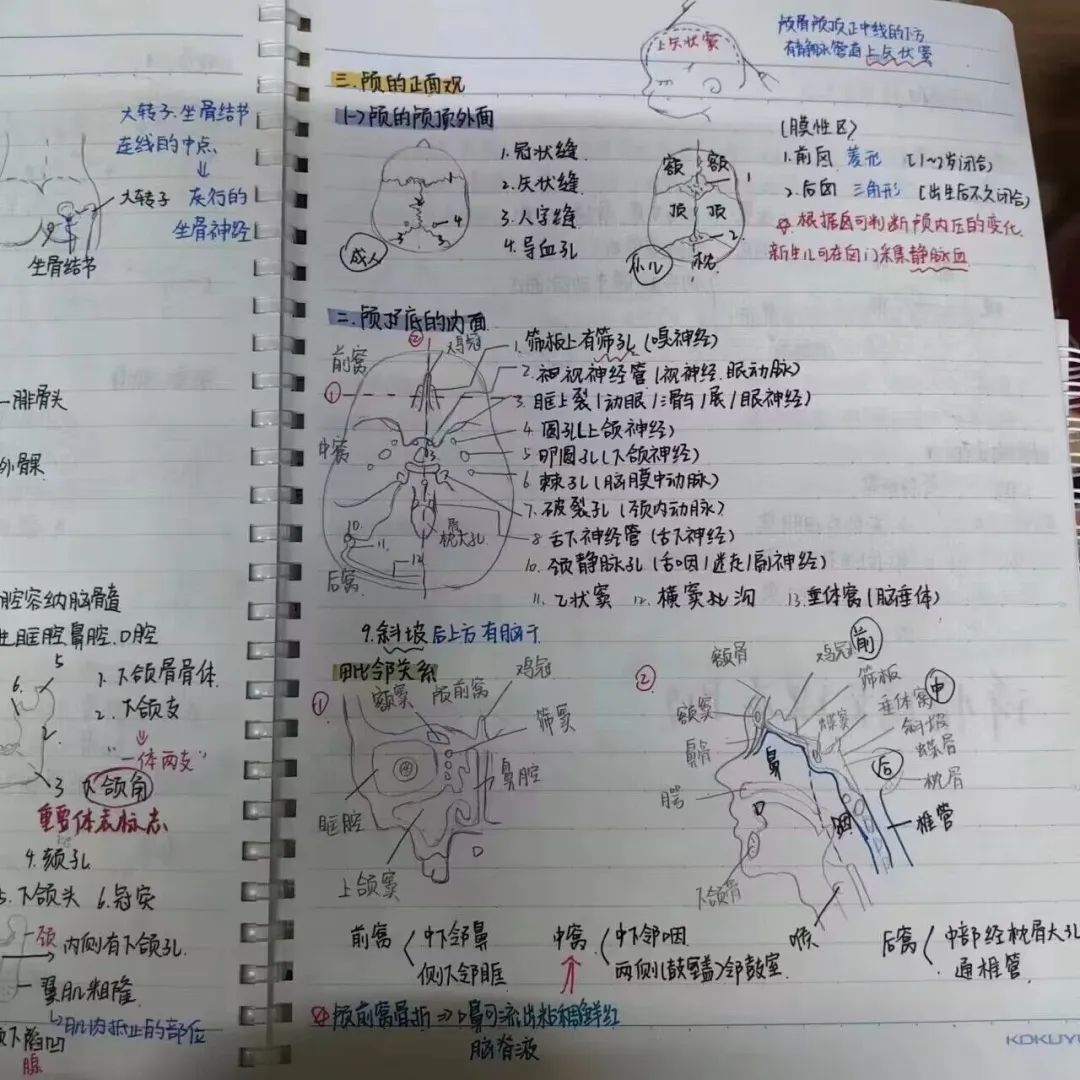 大转子.坐骨结节
连线的中点
⇓
大转子 灰行的
坐骨神经
坐骨结节
腓骨头
外髁
腔容纳脑骨髓
眶腔.鼻腔.口腔
5
6.
1. 下颌骨骨体
2. 下颌支
2.
⇓
"一体两支"
3 下颌角
重要体表标志
4.颏孔
5.下颌头 6.冠突
内侧有下颌孔
翼肌粗隆
↳肌肉抵止的部位
腺
上矢状窦
颅骨颅顶正中线的下方
有静脉管道上矢状窦
三.颅的正面观
(一)颅的颅顶外面
1.冠状缝
2.矢状缝
3.人字缝
4.导血孔
成人
1
4
3
额 额
顶 顶
枕
1
2
(膜性区)
1.前囟 菱形 (1~2岁闭合)
2.后囟 三角形 (出生后不久闭合)
根据囟可判断颅内压的变化
新生儿可在囟门采集静脉血
二.颅底的内面
前窝
②
鸡冠
①
中窝
后窝
枕骨大孔
10.
11.
12
13
9
1.筛板上有筛孔(嗅神经)
2.视神经管(视神经.眼动脉)
3.眶上裂(动眼/滑车/展/眼神经)
4.圆孔(上颌神经)
5.卵圆孔(下颌神经)
6.棘孔(脑膜中动脉)
7.破裂孔(颈内动脉)
8.舌下神经管(舌下神经)
10.颈静脉孔(舌咽/迷走/副神经)
11.乙状窦 12.横窦沟 13.垂体窝(脑垂体)
9.斜坡后上方有脑干
毗邻关系
①
额窦
颅前窝
鸡冠
筛窦
鼻腔
眶腔
上颌窦
口
②
额骨
鸡冠
前
筛板
额窦
垂体窝
中
蝶窦
斜坡
蝶骨
鼻骨
鼻
后
枕骨
腭
口
咽
椎管
下颌骨
喉
前窝
中下邻鼻
侧下邻眶
中窝
中下邻咽
两侧(鼓室盖)邻鼓室
后窝
中部经枕骨大孔
通椎管
颅前窝骨折⇒口鼻可流出粘稠鲜红
脑脊液
KOKUYO